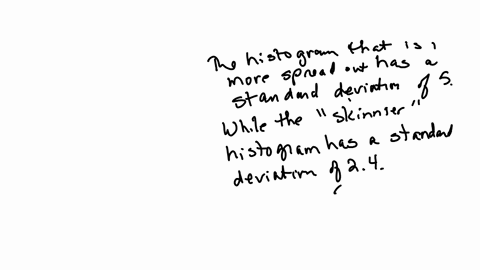 The histogram that is
more spread out has a
standard deviation of 5.
While the "skinnier"
histogram has a standard
deviation of 2.4.